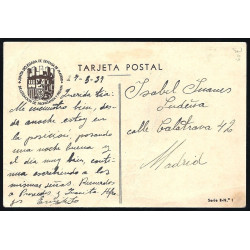 TARJETA POSTAL
9-3-39
Querida tia:
Me encuentro bien, des-
de anoche estoy en
la posición, pasando
una noche buena y
el dia muy bien, conti-
nua escribiendo a las
mismas señas. Recuerdos
a
Isabel Suarez
Ludeña
calle Calatrava 42
Madrid
Serie B-N.º 1